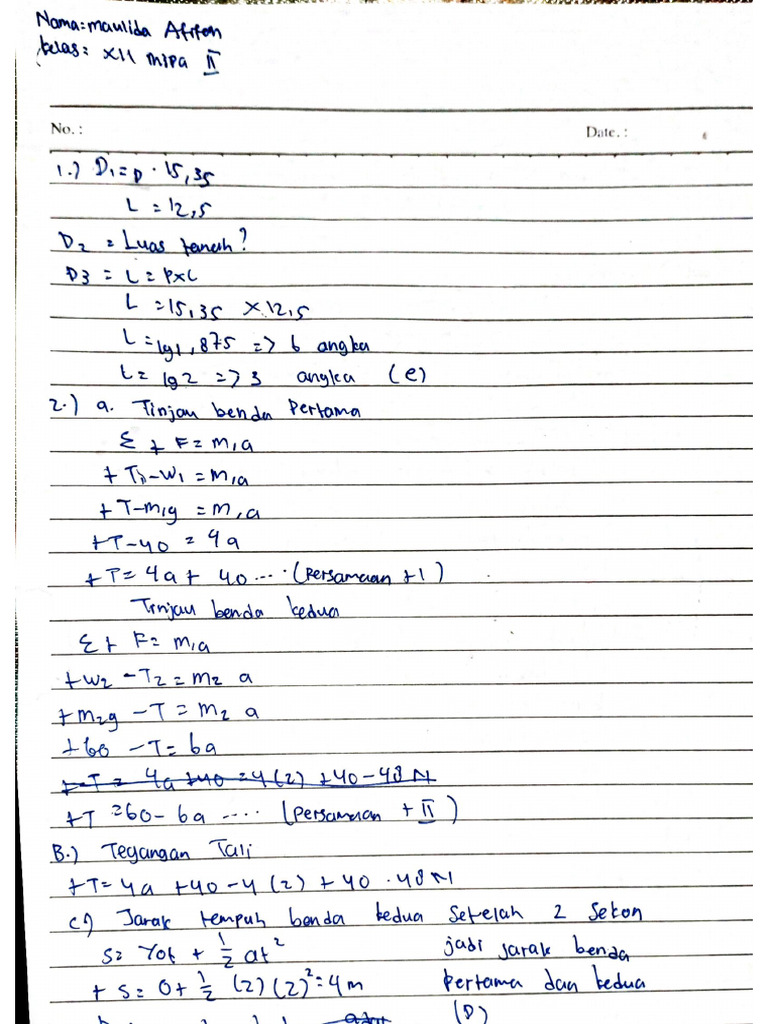 Nama=maulida Afifah
kelas= XII mipa II
No. :
Date. :
1.) D1=P. 15,35
L = 12,5
D2 = Luas tanah?
D3 = L = PxL
L =15,35 x 12,5
L = 191,875 => 6 angka
L= 192 => 3 angka (e)
2.) a. Tinjau benda Pertama
Σ + F=m1a
+ T1-W1 =m1a
+ T-m1g = m1a
+T-40 = 4a
+ T= 4a + 40 .... (Persamaan +1)
Tinjau benda kedua
Σ + F= m1a
+w2 -T2=m2 a
+m2g -T = m2 a
+60 -T= 6a
+-T= 4a +40 =4(2) +40-48 N
+T =60- 6a .... (persamaan + II)
B.) Tegangan Tali
+T=4a +40-4 (2) + 40 . 48N
c.) Jarak tempuh benda kedua Setelah 2 Sekon
s= Vot + 1/2 at²
jadi jarak benda
+ s= 0+ 1/2 (2) (2)²=4m
pertama dan kedua
(D)